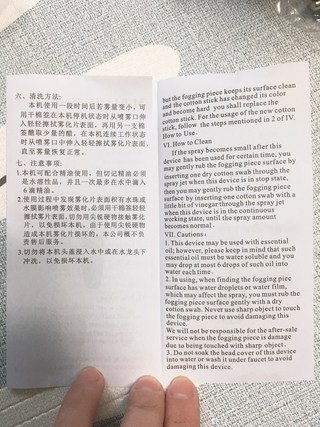 六、清洗方法:
本机使用一段时间后若雾量变小，可
用干棉签在本机停机状态时从喷雾口伸
入轻轻擦拭雾化片表面，再用另一支棉
签醮取少量的醋，在本机连续工作状态
时从喷雾口中伸入轻轻擦拭雾化片表面，
直至雾量恢复正常。
七、注意事项:
1.本机可配合精油使用，但切记精油必须
是水溶性品，并且一次最多在水中滴入
6滴精油。
2.使用过程中发现雾化片表面积有水珠或
水膜影响喷雾效能时,必须用干棉签轻轻
擦拭雾片表面,切勿用尖锐硬物接触雾化
片，以免损坏本机。由于使用尖锐硬物
造成本机雾化片损坏的，本公司概不负
责售后服务。
3.切勿将本机头盖浸入水中或在水龙头下
冲洗，以免损坏本机。
but the fogging piece keeps its surface clean
and the cotton stick has changed its color
and become hard you shall replace the
cotton stick. For the usage of the new cotton
stick, follow the steps mentioned in 2 of IV.
How to Use.
VI.How to Clean
If the spray becomes small after this
device has been used for certain time, you
may gently rub the fogging piece surface by
inserting one dry cotton swab through the
spray jet when this device is in stop state,
then you may gently rub the fogging piece
surface by inserting one cotton swab with a
little bit of vinegar through the spray jet
when this device is in the continuous
working state, until the spray amount
becomes normal.
VII. Cautions:
1.This device may be used with essential
oil; however, please keep in mind that such
essential oil must be water soluble and you
may drop at most 6 drops of such oil into
water each time.
2. In using, when finding the fogging piec
surface has water droplets or water film,
which may affect the spray, you must rub the
fogging piece surface gently with a dry
cotton swab. Never use sharp object to touch
the fogging piece to avoid damaging this
device.
We will not be responsible for the after-sale
service when the fogging piece is damage
due to being touched with sharp object.
3. Do not soak the head cover of this device
into water or wash it under faucet to avoid
damaging this device.